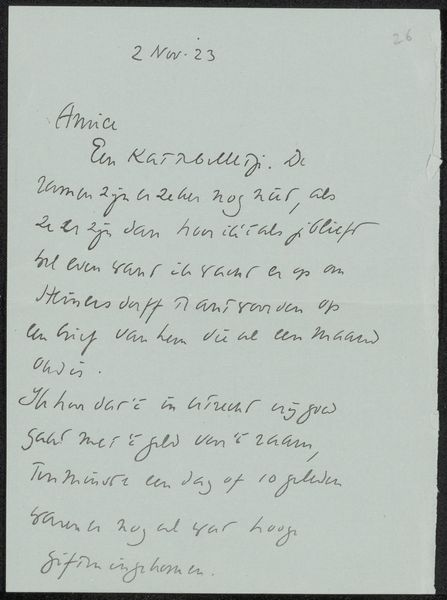 26
2 Nov. 23
Amice
Een Kattebelletje. De
ramen zijn er zeker nog niet, als
ze er zijn dan hoor ik 't als je blieft
wel even want ik wacht er op om
Heinersdorff te antwoorden op
een brief van hem die al een maand
oud is.
Ik hoor dat 't in Utrecht vrij goed
gaat met 't geld van 't raam,
Tenminste een dag of 10 geleden
waren er nog al wat hooge
giften ingekomen.